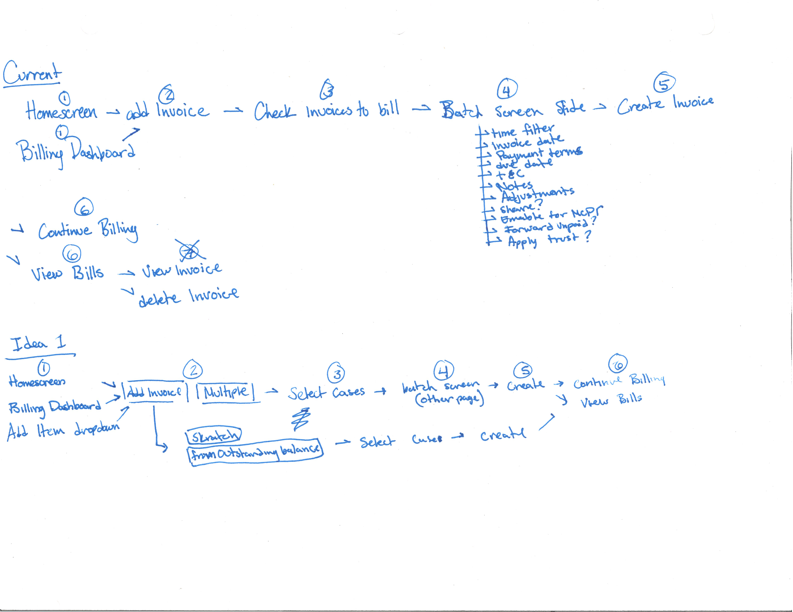 Current
① ② ③ ④ ⑤
Homescreen → add Invoice → Check Invoices to bill → Batch Screen Slide → Create Invoice
①
Billing Dashboard
→ time filter
→ Invoice date
→ Payment terms
→ due date
→ t&C
→ Notes
→ Adjustments
→ Share?
→ Forward unpaid?
→ Apply trust?
⑥
→ Continue Billing
⑥ 7
View Bills → View Invoice
delete Invoice
Idea 1
① ② ③ ④ ⑤ ⑥
Homescreen
Billing Dashboard
Add Item dropdown
Add Invoice Multiple → Select Cases → batch screen → Create → Continue Billing
(other page)
View Bills
Skratch
from Outstanding balance → Select Cases → Create